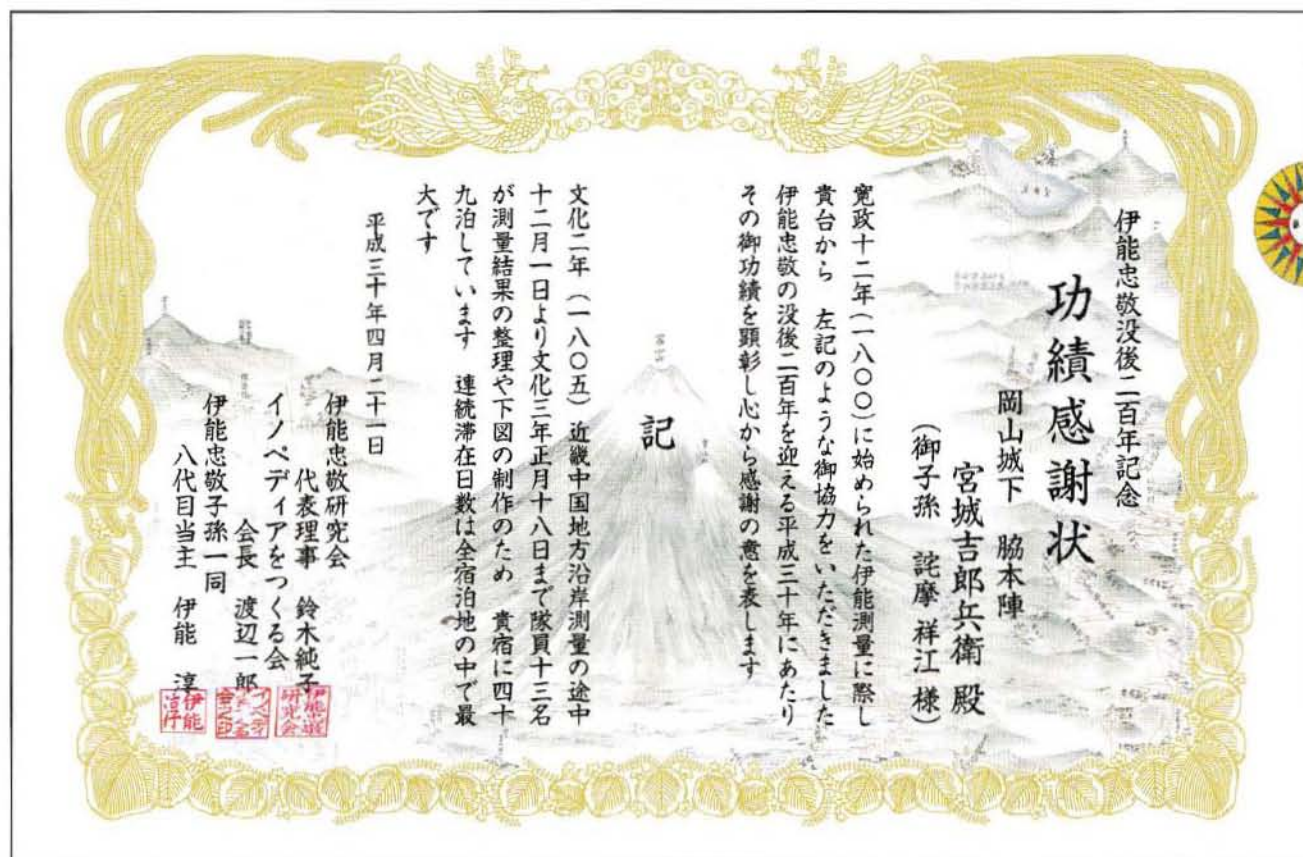 伊能忠敬没後二百年記念
功績感謝状
岡山城下 脇本陣
宮城吉郎兵衛 殿
(御子孫 詫摩 祥江 様)
寛政十二年(一八〇〇)に始められた伊能測量に際し
貴台から 左記のような御協力をいただきました
伊能忠敬の没後二百年を迎える平成三十年にあたり
その御功績を顕彰し心から感謝の意を表します
記
文化二年(一八〇五)近畿中国地方沿岸測量の途中
十二月一日より文化三年正月十八日まで隊員十三名
が測量結果の整理や下図の制作のため 貴宿に四十
九泊しています 連続滞在日数は全宿泊地の中で最
大です
平成三十年四月二十一日
伊能忠敬研究会
代表理事 鈴木純子
イノペディアをつくる会
会長 渡辺一郎
伊能忠敬子孫一同
八代目当主 伊能 淳